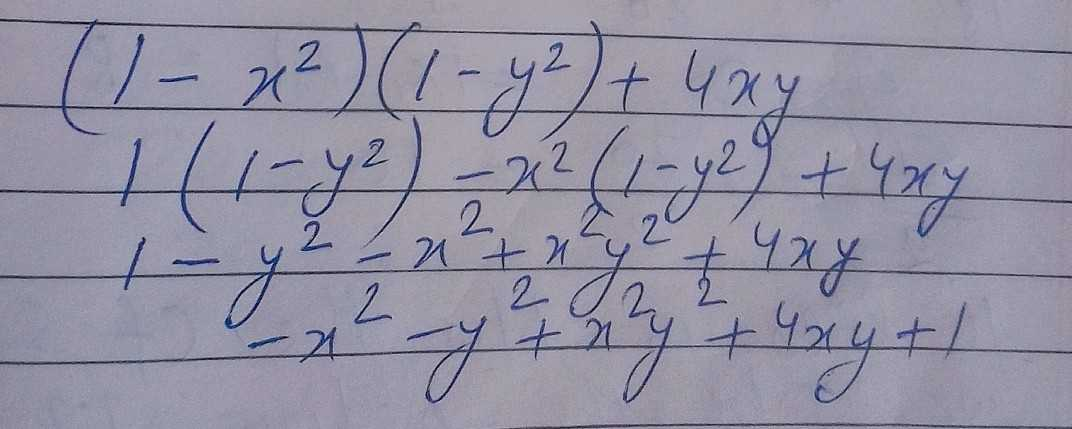 (1 - x²)(1 - y²) + 4xy
1(1 - y²) - x²(1 - y²) + 4xy
1 - y² - x² + x²y² + 4xy
- x² - y² + x²y² + 4xy + 1